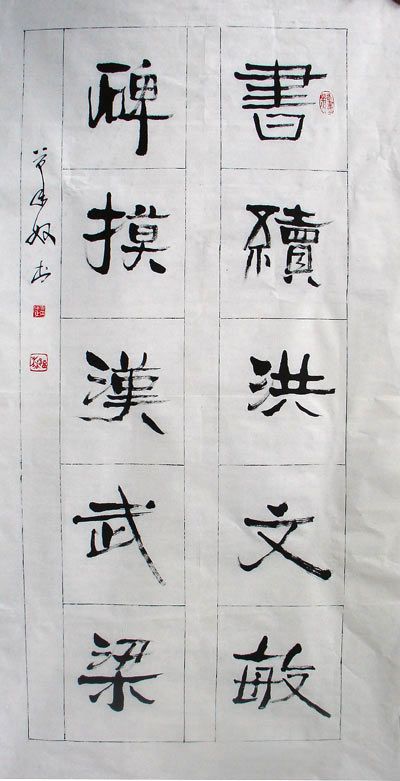 書續洪文敏
碑摸漢武梁